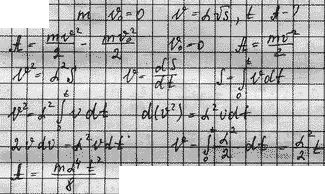 m v₀=0 v=α√s, t A-?
A = mv²/2 - mv₀²/2 v₀=0 A = mv²/2
v²=α²S v=dS/dt S=∫₀ᵗ vdt
v²=α²∫₀ᵗ vdt d(v²)=α²vdt
2vdv=α²vdt v=∫₀ᵗ α²/2 dt = α²/2 t
A = mα⁴t²/8